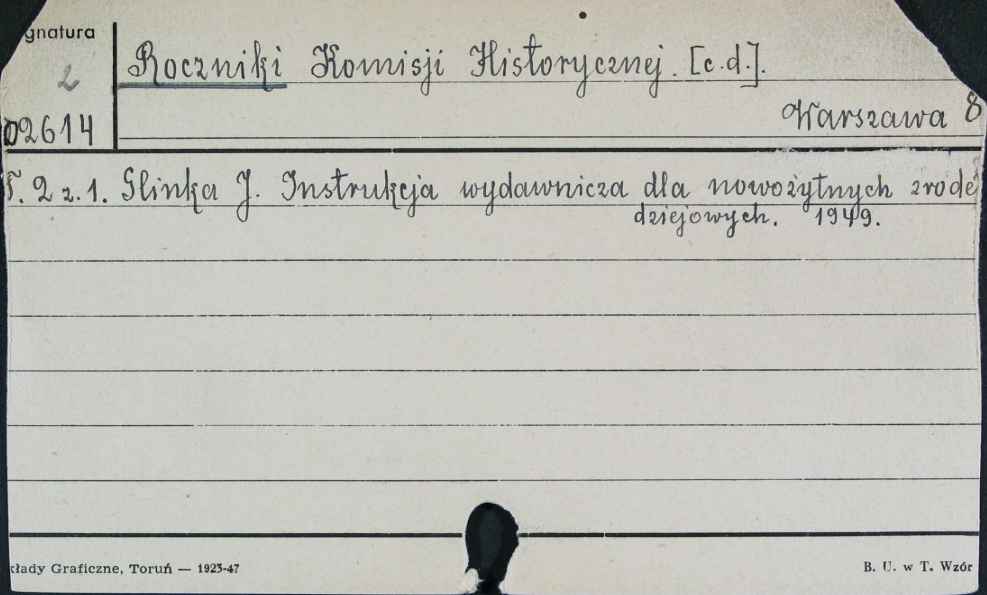 gnatura
2
02614
Roczniki Komisji Historycznej. [c.d.].
Warszawa 8
T. 2 z. 1. Glinka J. Instrukcja wydawnicza dla nowożytnych zrode
dziejowych. 1949.
kłady Graficzne, Toruń — 1923-47
B. U. w T. Wzór